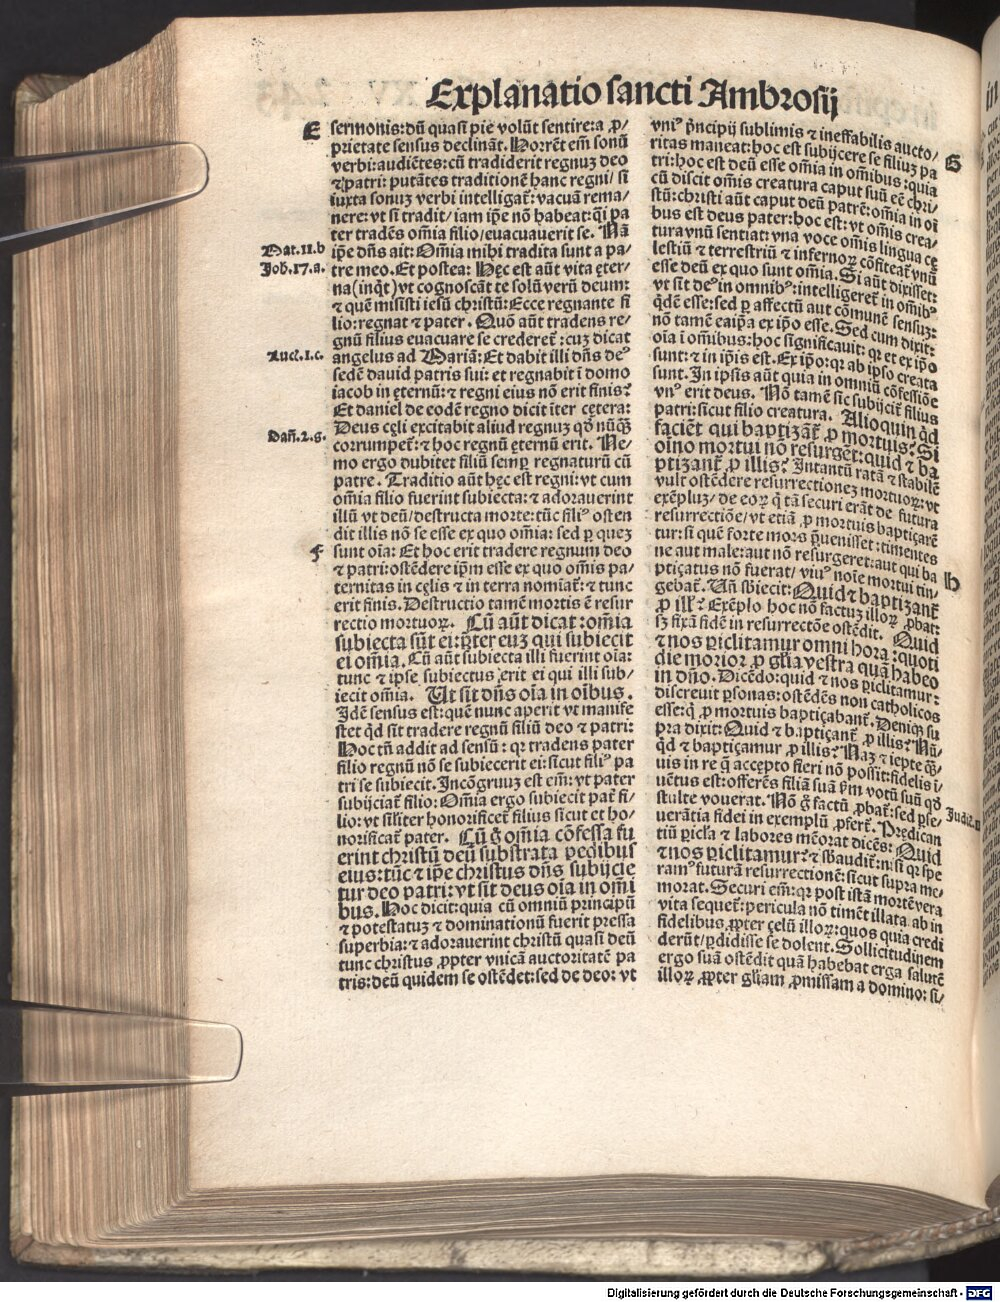 Explanatio sancti Ambrosij
E
sermonis: dū quasi pie volūt sentire: a ꝓ/
prietate sensus declināt. Horrēt em̄ sonū
verbi: audiētes: cū tradiderit regnuꝫ deo
⁊ patri: putātes traditionē hanc regni/ si
iuxta sonuꝫ verbi intelligat̄: vacuā rema/
nere: vt si tradit/ iam ip̄e nō habeat: q̄i pa
ter tradēs om̄ia filio/ euacuauerit se. Nā
Mat. 11. b
ip̄e dn̄s ait: Om̄ia mihi tradita sunt a pa/
Joh. 17. a.
tre meo. Et postea: Hęc est aūt vita ęter/
na (inq̄t) vt cognoscāt te solū verū deum:
⁊ quē misisti iesū christū: Ecce regnante fi
lio: regnat ⁊ pater. Quō aūt tradens re/
gnū filius euacuare se crederet̄: cuꝫ dicat
Luc. 1. c.
angelus ad Mariā: Et dabit illi dn̄s deꝰ
sedē dauid patris sui: et regnabit ī domo
iacob in ęternū: ⁊ regni eius nō erit finis?
Et daniel de eodē regno dicit iter cętera:
Dań. 2. g.
Deus cęli excitabit aliud regnuꝫ qd̄ nūqꝫ
corrumpet̄: ⁊ hoc regnū ęternū erit. Ne/
mo ergo dubitet filiū semꝑ regnaturū cū
patre. Traditio aūt hęc est regni: vt cum
om̄ia filio fuerint subiecta: ⁊ adorauerint
illū vt deū/ destructa morte: tūc filiꝰ osten
dit illis nō se esse ex quo om̄ia: sed ꝑ quez
F
sunt oīa: Et hoc erit tradere regnum deo
⁊ patri: ostēdere ip̄m esse ex quo om̄is pa/
ternitas in cęlis ⁊ in terra nomīat̄: ⁊ tunc
erit finis. Destructio tamē mortis ē resur
rectio mortuoꝝ. Cū aūt dicat: om̄ia
subiecta sūt ei: p̄ter euꝫ qui subiecit
ei om̄ia. Cū aūt subiecta illi fuerint oīa:
tunc ⁊ ipse subiectus erit ei qui illi sub/
iecit om̄ia. Ut sit dn̄s oīa in oībus.
Idē sensus est: quē nunc aperit vt manife
stet qd̄ sit tradere regnū filiū deo ⁊ patri:
Hoc tn̄ addit ad sensū: qꝛ tradens pater
filio regnū nō se subiecerit ei: sicut filiꝰ pa
tri se subiecit. Incōgruuꝫ est em̄: vt pater
subijciat̄ filio: Om̄ia ergo subiecit pat̄ fi/
lio: vt sīliter honorificet̄ filius sicut et ho/
norificat̄ pater. Cū g̊ om̄ia cōfessa fu
erint christū deū substrata pedibus
eius: tūc ⁊ ip̄e christus dn̄s subijcie
tur deo patri: vt sit deus oīa in om̄i
bus. Hoc dicit: quia cū omniū principū
⁊ potestatuꝫ ⁊ dominationū fuerit pressa
superbia: ⁊ adorauerint christū quasi deū
tunc christus ꝓpter vnicā auctoritatē pa
tris: deū quidem se ostēdet: sed de deo: vt
vniꝰ p̄ncipij sublimis ⁊ ineffabilis aucto/
G
ritas maneat: hoc est subijcere se filiuꝫ pa
tri: hoc est deū esse om̄ia in om̄ibus: quia
cū discit om̄is creatura caput suū eē chri/
stū: christi aūt caput deū patrē: om̄ia in oī
bus est deus pater: hoc est: vt om̄is crea/
tura vnū sentiat: vna voce om̄is lingua cę
lestiū ⁊ terrestriū ⁊ infernoꝝ cōfiteat̄ vnū
esse deū ex quo sunt om̄ia. Si aūt dixisset:
vt sit deꝰ in omnibꝰ: intelligeret̄ in om̄ibꝰ
q̄dē esse: sed ꝑ affectū aut cōmunē sensuꝫ:
nō tamē ea ip̄a ex ip̄o esse. Sed cum dixit:
oīa ī om̄ibus: hoc significauit: qꝛ et ex ip̄o
sunt: ⁊ in ip̄is est. Ex ip̄o: qꝛ ab ipso creata
sunt. In ipsis aūt quia in omniū cōfessiōe
vnꝰ erit deus. Nō tamē sic subijcit̄ filius
patri: sicut filio creatura. Alioquin qd̄
faciēt qui baptizāt̄ ꝓ mortuis? Si
oīno mortui nō resurgēt: quid ⁊ ba
ptizant̄ ꝓ illis? Intantū ratā ⁊ stabilē
vult ostēdere resurrectionez mortuoꝝ: vt
exēpluꝫ/ de eoꝝ q̄ tā securi erāt de futura
resurrectiōe/ vt etiā ꝓ mortuis baptiçarē
tur: si quē forte mors p̄uenisset: timentes
ne aut male: aut nō resurgeret: aut qui ba
H
ptiçatus nō fuerat/ viuꝰ noīe mortui tin/
gebat̄. Uń sb̄iecit: Quid ⁊ baptizant̄
ꝓ illꝭ? Exēplo hoc nō factuꝫ illoꝝ ꝓbat:
sꝫ fixā fidē in resurrectōe ostēdit. Quid
⁊ nos ꝑiclitamur omni hora: quoti
die morior ꝓ gl̄ia vestra quā habeo
in dn̄o. Dicēdo: quid ⁊ nos ꝑiclitamur:
discreuit ꝑsonas: ostēdēs non catholicos
esse: q̄ ꝓ mortuis baptiçabant̄. Deniqꝫ su
pra dixit: Quid ⁊ baptiçant̄ ꝓ illis? Nū/
qd̄ ⁊ baptiçamur ꝓ illis? Naꝫ ⁊ iepte q̄/
uis in re q̄ accepto fieri nō possit: fidelis ī/
uētus est: offerēs filiā suā ꝓm votū suū qd̄
Judic. 11
stulte vouerat. Nō g̊ factū ꝓbat̄: sed ꝑse/
uerātia fidei in exemplū ꝓfert̄. Predican
tiū ꝑicl̄a ⁊ labores mēorat dicēs: Quid
⁊ nos ꝑiclitamur? ⁊ sb̄audit̄: nisi qꝛ spe
ramꝰ futurā resurrectionē: sicut supra me/
morat. Securi em̄: qꝛ post istā mortē vera
vita sequet̄: pericula nō timēt illata ab in
fidelibus ꝓpter çelū illoꝝ: quos quia credi
derūt/ ꝑdidisse se dolent. Sollicitudinem
ergo suā ostēdit quā habebat erga salutē
illoꝝ ꝓpter gl̄iam ꝓmissam a domino: si/
Digitalisierung gefördert durch die Deutsche Forschungsgemeinschaft - DFG